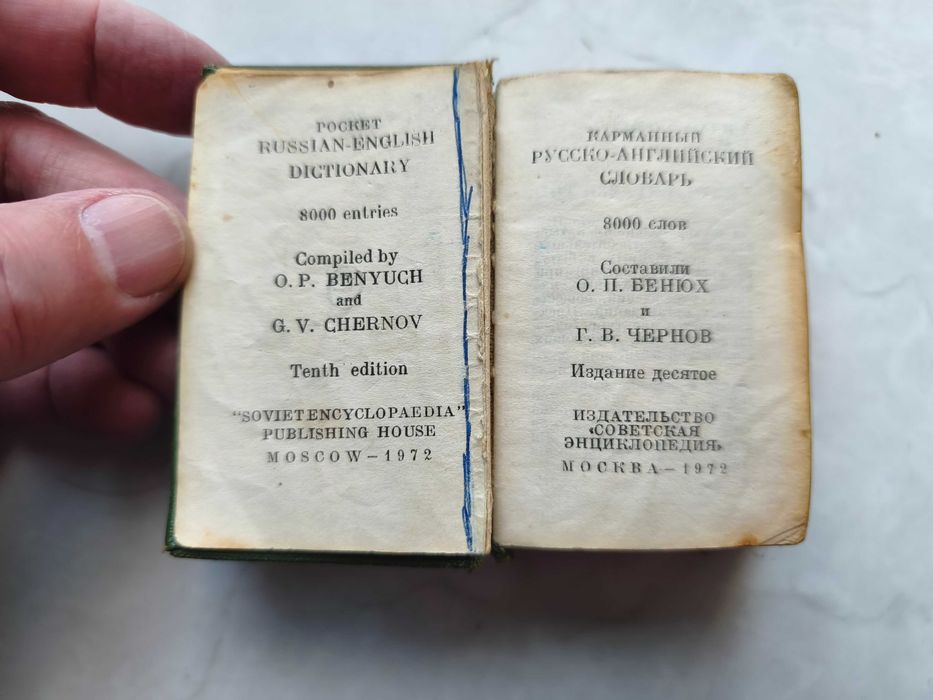 POCKET
RUSSIAN-ENGLISH
DICTIONARY
8000 entries
Compiled by
O. P. BENYUCH
and
G. V. CHERNOV
Tenth edition
"SOVIET ENCYCLOPAEDIA"
PUBLISHING HOUSE
MOSCOW — 1972
КАРМАННЫЙ
РУССКО-АНГЛИЙСКИЙ
СЛОВАРЬ
8000 слов
Составили
О. П. БЕНЮХ
и
Г. В. ЧЕРНОВ
Издание десятое
ИЗДАТЕЛЬСТВО
«СОВЕТСКАЯ
ЭНЦИКЛОПЕДИЯ»
МОСКВА — 1972